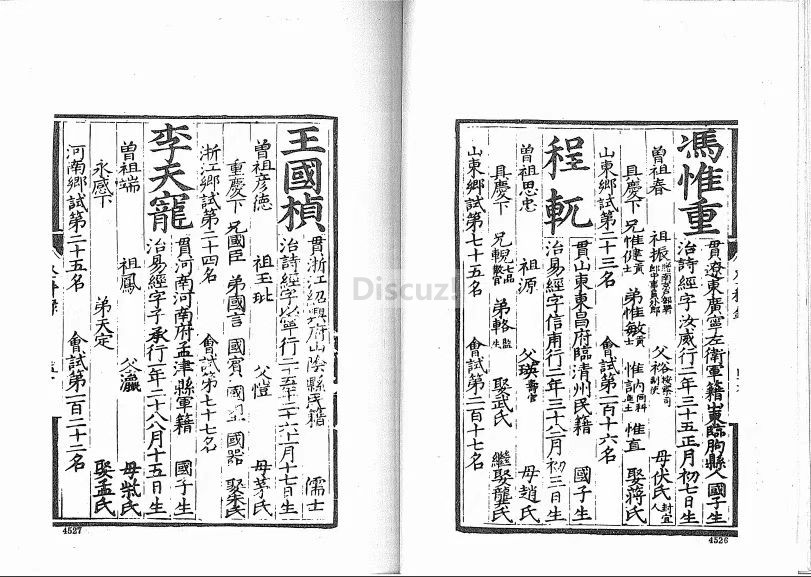 馮惟重
貫遼東廣寧左衛軍籍山東臨朐縣人國子生
治詩經字汝威行二年三十五正月初七日生
曾祖春 祖振 父裕 母伏氏
具慶下 兄惟健 弟惟敏 惟訥 惟直 娶蔣氏
山東鄉試第二十三名 會試第一百十六名
程軏
貫山東東昌府臨清州民籍 國子生
治易經字信甫行二年三十二月初三日生
曾祖思忠 祖源 父瑛 母趙氏
具慶下 兄 弟輅 娶武氏 繼娶龔氏
山東鄉試第七十五名 會試第二百十七名
4526
王國楨
貫浙江紹興府山陰縣民籍 儒士
治詩經字以寧行二十五年二十六十一月十七日生
曾祖彦德 祖玉玭 父愷 母茅氏
重慶下 兄國臣 弟國言 國賓 國器
浙江鄉試第二十四名 會試第七十七名
李天寵
貫河南河南府孟津縣軍籍 國子生
治易經字子承行一年二十八八月十五日生
曾祖端 祖鳳 父瀛 母柴氏
永感下 弟天定 娶孟氏
河南鄉試第二十五名 會試第一百二十二名
4527
Discuz!